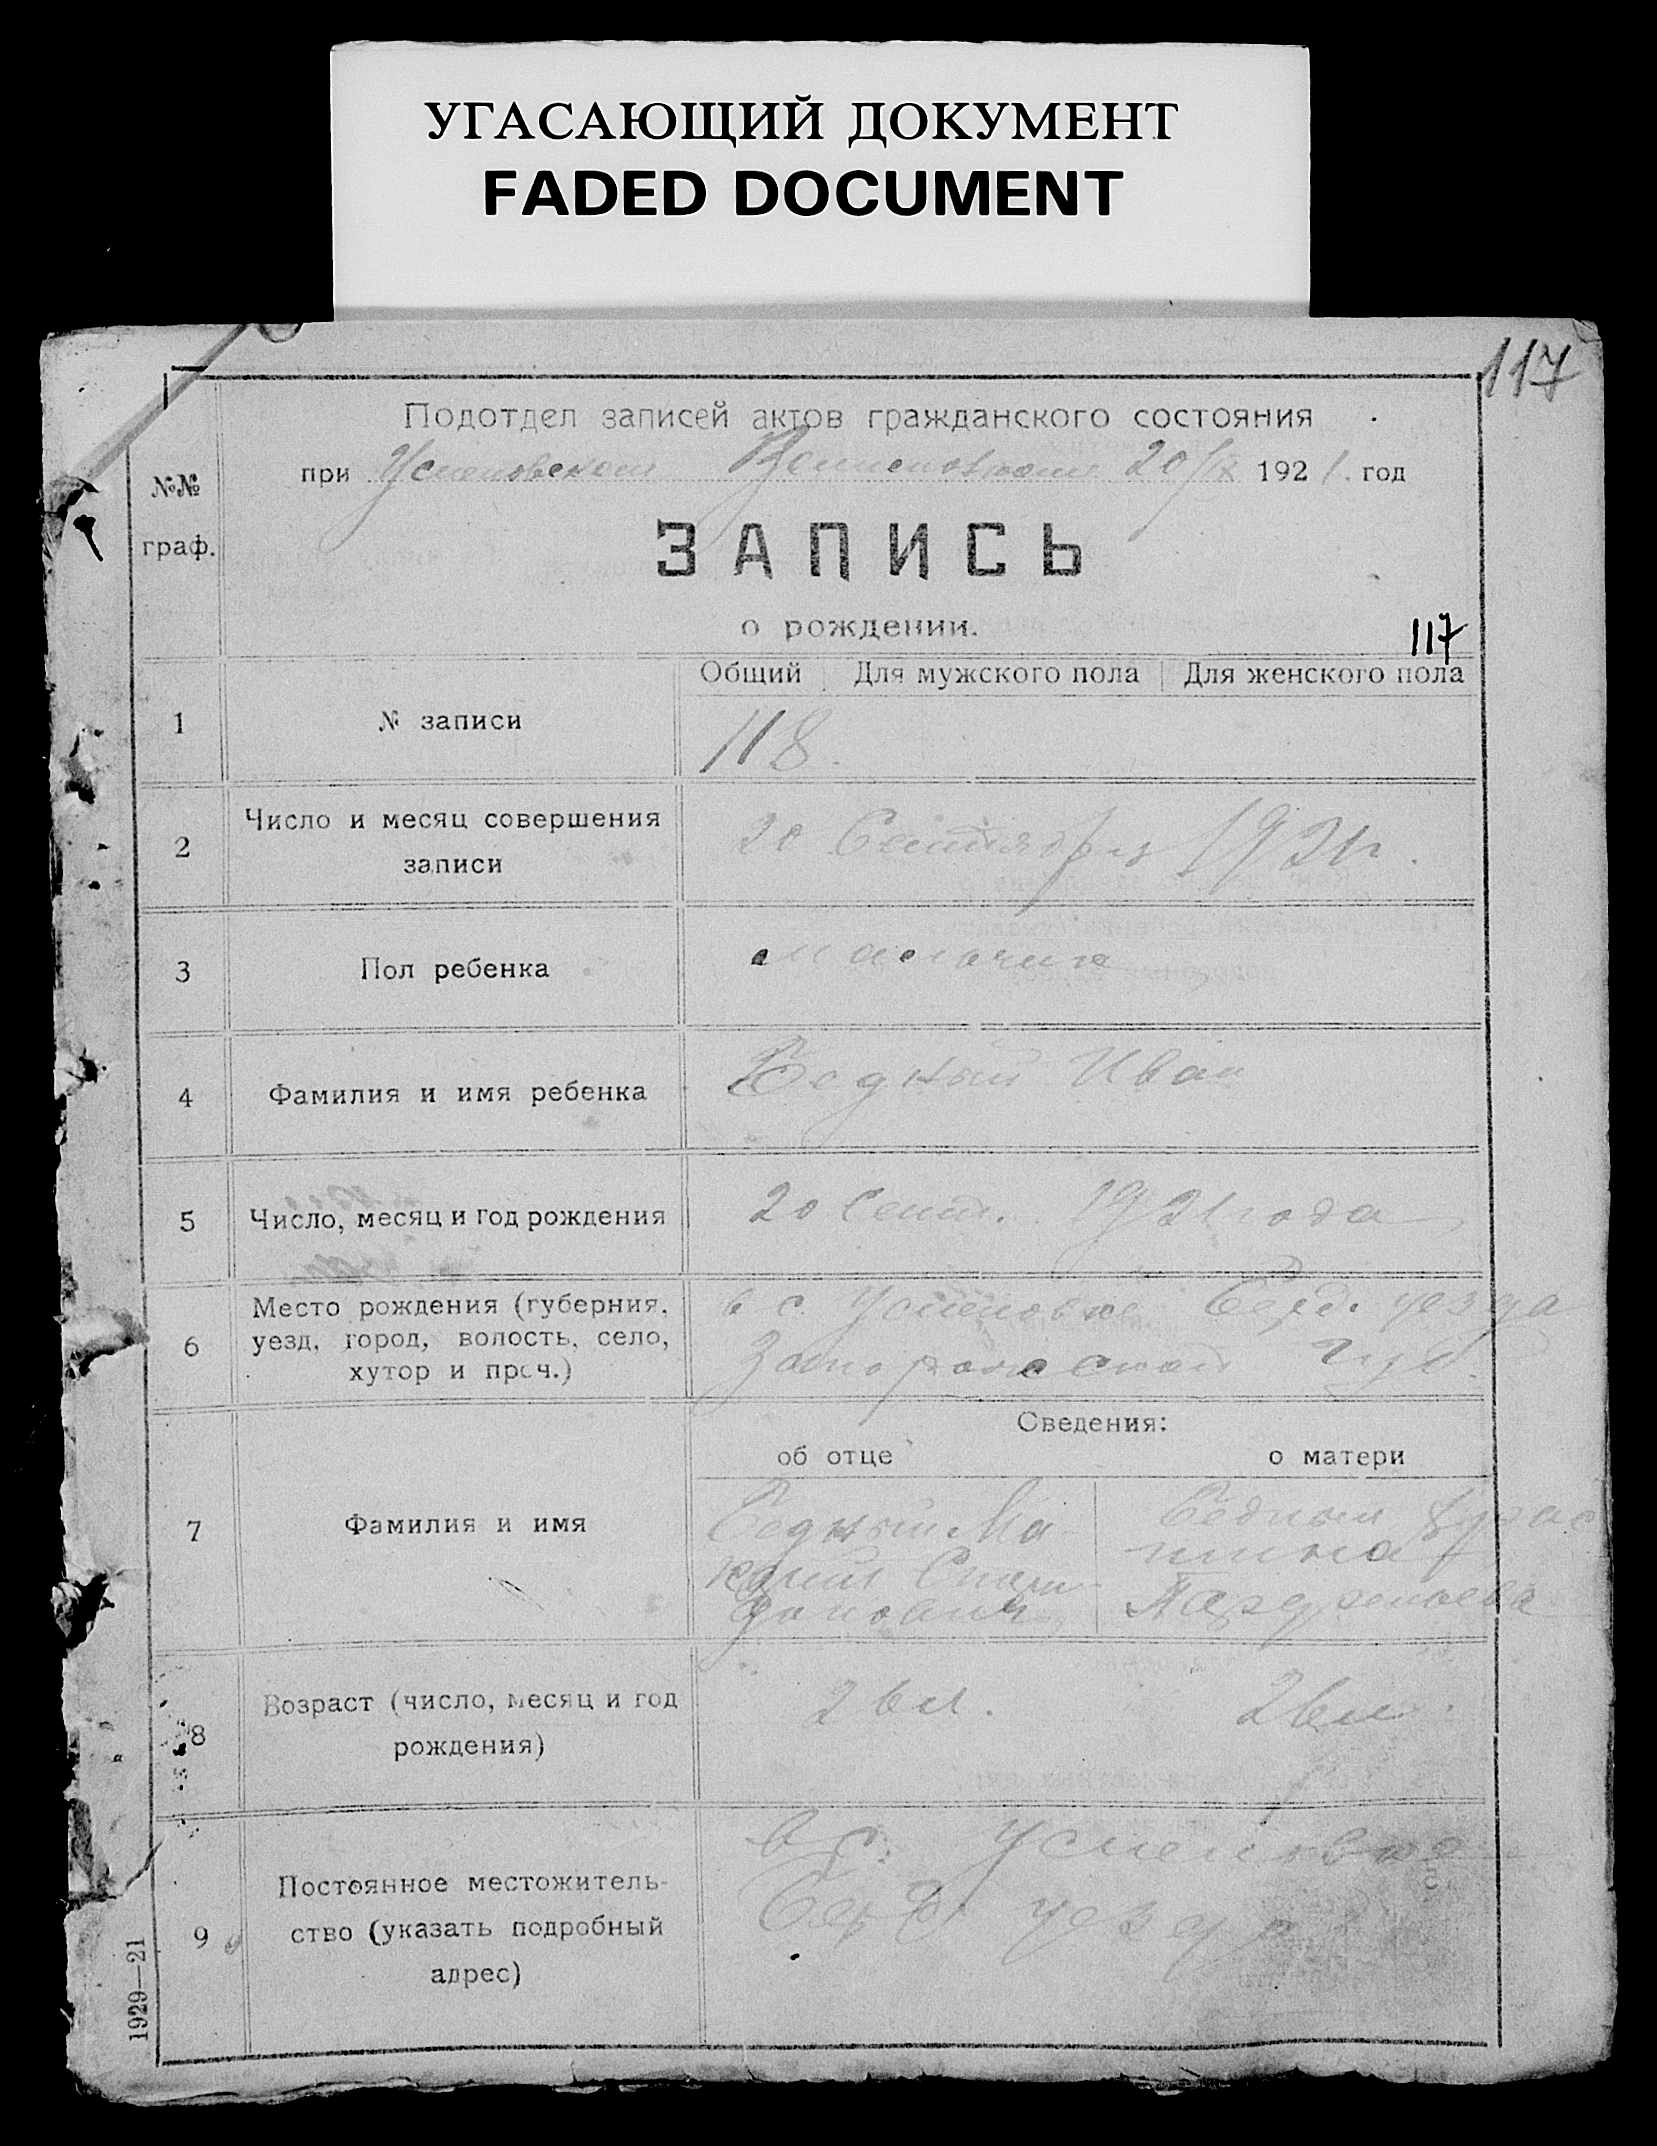 УГАСАЮЩИЙ ДОКУМЕНТ
FADED DOCUMENT
117
Подотдел записей актов гражданского состояния
при Успеновском 20/IX 1921. год
№№
граф.
ЗАПИСЬ
о рождении.
117
Общий Для мужского пола Для женского пола
1 № записи 118.
2 Число и месяц совершения
записи
20 Сентября 1921г.
3 Пол ребенка мальчик
4 Фамилия и имя ребенка Бедный Иван
5 Число, месяц и год рождения 20 Сент. 1921 года
6 Место рождения (губерния,
уезд, город, волость, село,
хутор и проч.)
в с. Успеновке Берд. уезда
Запорожской губ.
Сведения:
об отце о матери
7 Фамилия и имя
Бедный Ма
карий Спири
донович
Бедным
8 Возраст (число, месяц и год
рождения)
26 л. 26 л.
9 Постоянное местожитель-
ство (указать подробный
адрес)
в с. Успеновке
Берд. уезда
1929—21